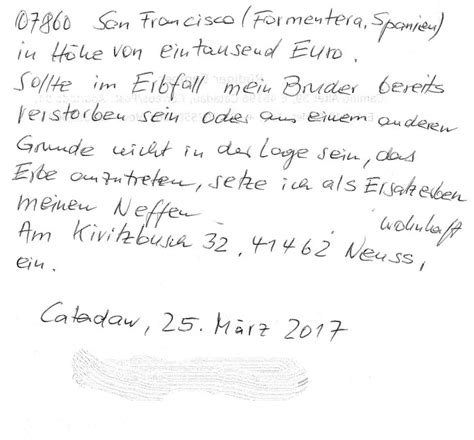 07860 San Francisco (Formentera, Spanien)
in Höhe von eintausend Euro.
Sollte im Erbfall mein Bruder bereits
verstorben sein oder aus einem anderen
Grunde nicht in der Lage sein, das
Erbe anzutreten, setze ich als Ersatzerben
meinen Neffen wohnhaft
Am Kivitzbusch 32, 41462 Neuss,
ein.
Caladaw, 25. März 2017